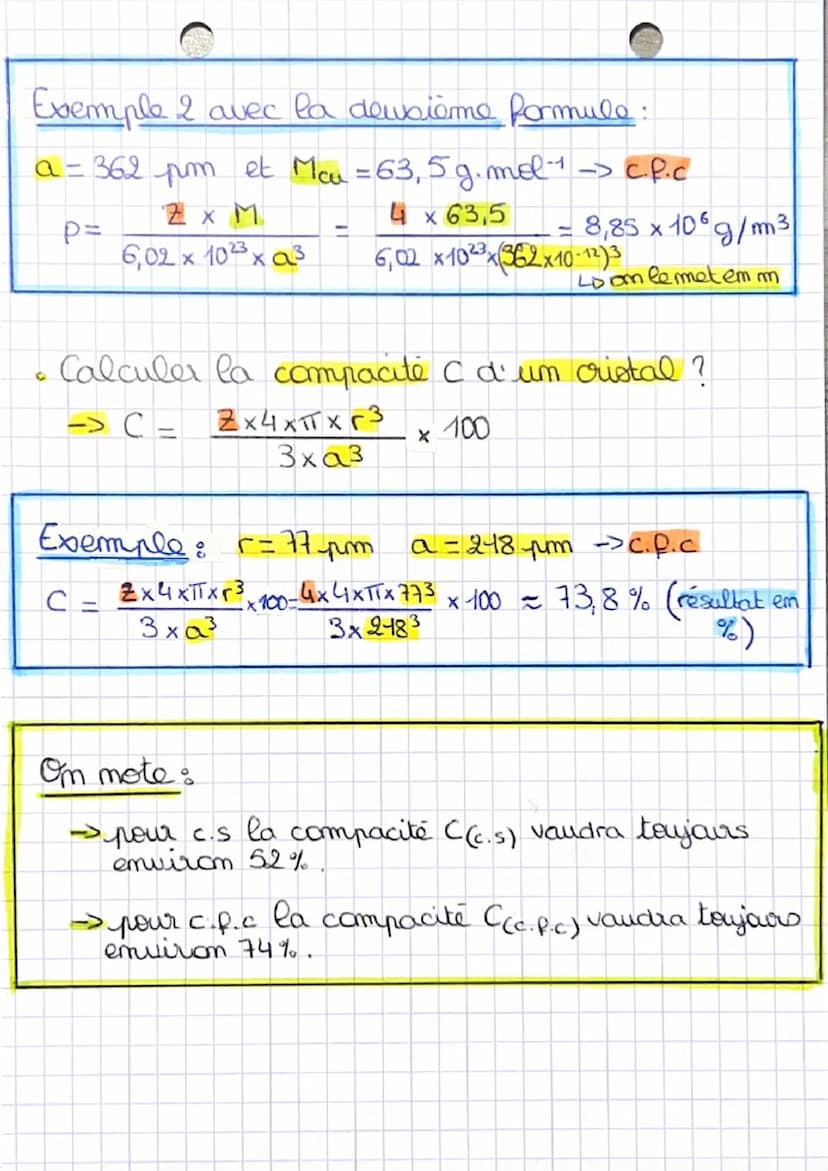 Exemple 2 avec la deuxième formule :
a = 362 pm et Mcu = 63,5 g.mol⁻¹ -> c.f.c
ρ = (Z x M) / (6,02 x 10²³ x a³) = (4 x 63,5) / (6,02 x 10²³ x (362 x 10⁻¹²)³) = 8,85 x 10⁶ g/m³
↳ on le met en m
• Calculer la compacité C d'un cristal ?
-> C = (Z x 4 x π x r³) / (3 x a³) x 100
Exemple : r = 77 pm a = 218 pm -> c.f.c
C = (Z x 4 x π x r³) / (3 x a³) x 100 = (4 x 4 x π x 77³) / (3 x 218³) x 100 ≈ 73,8 % (résultat en
%)
On note :
-> pour c.s la compacité C(c.s) vaudra toujours
environ 52 %.
-> pour c.f.c la compacité C(c.f.c) vaudra toujours
environ 74 %.